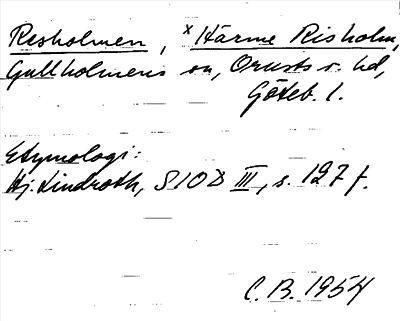 Resholmen, ˣHärme Risholm,
Gullholmens sn, Orusts v. hd,
Göteb. l.
Etymologi:
Hj. Lindroth, SIOD III, s. 127 f.
C. B. 1954